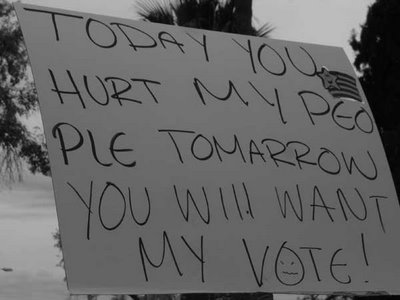 TODAY YOU
HURT MY PEO
PLE TOMARROW
YOU WIll WANT
MY VOTE!